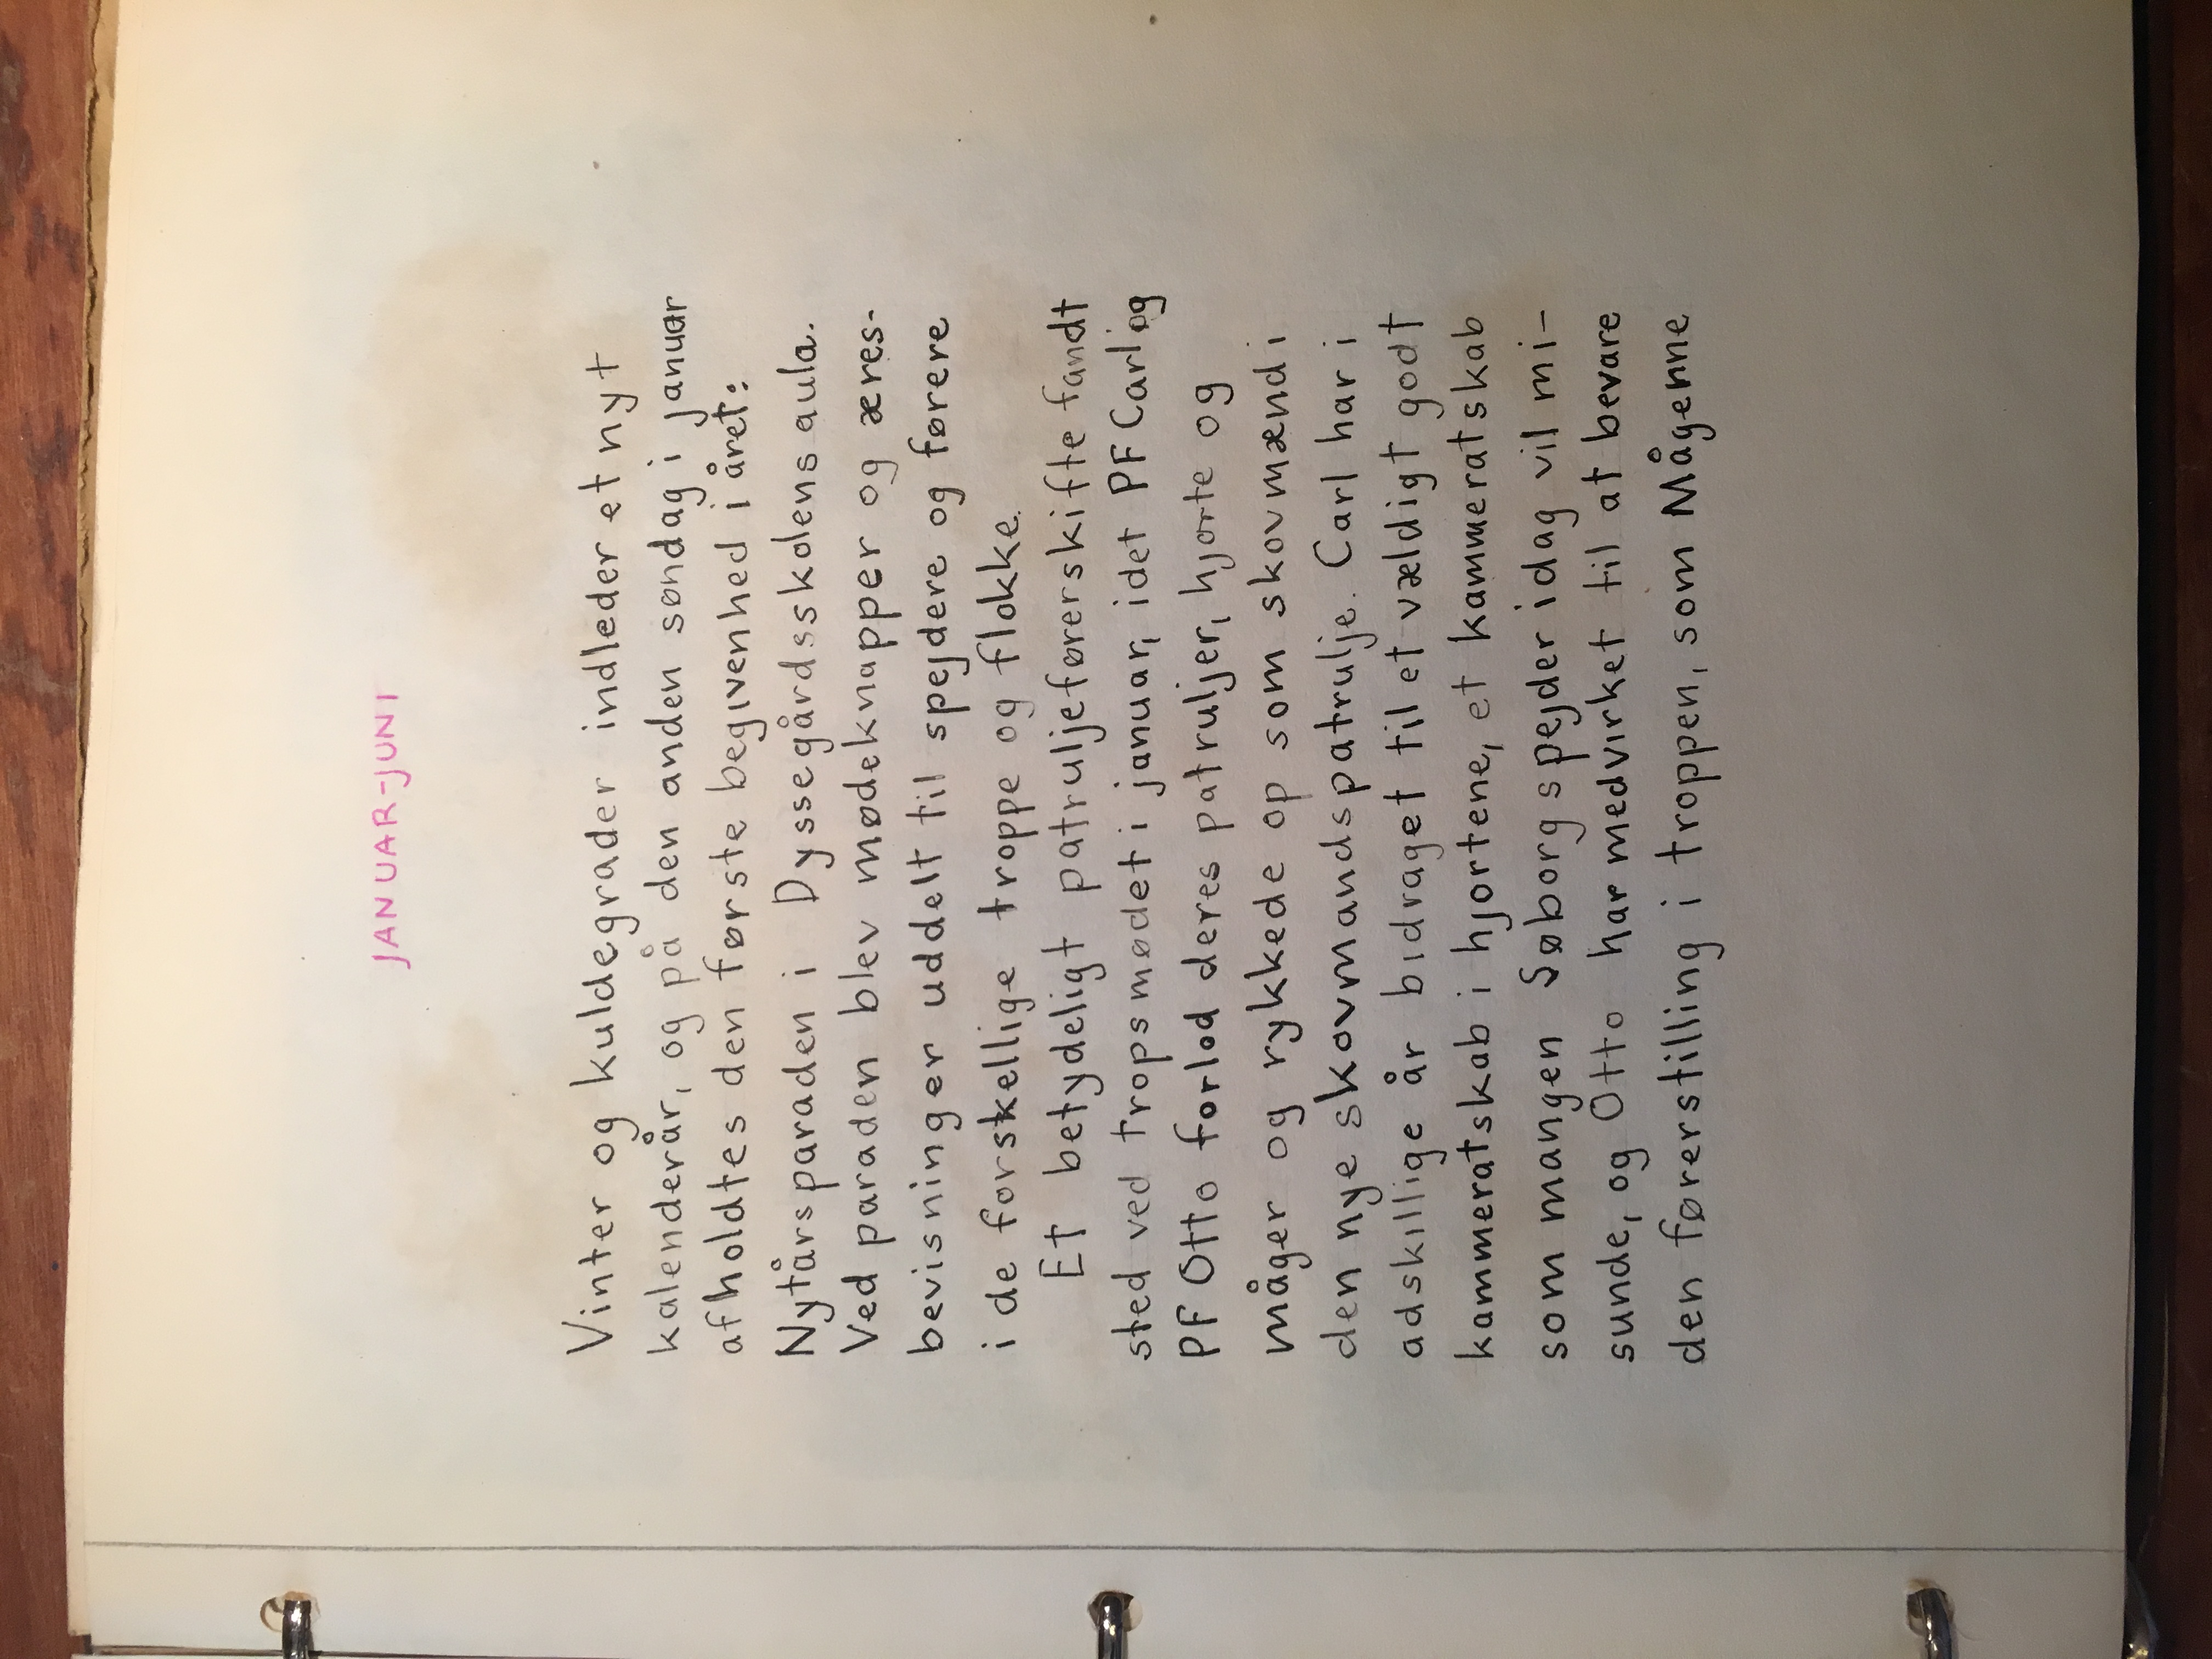 JANUAR-JUNI
Vinter og kuldegrader indleder et nyt
kalenderår, og på den anden søndag i januar
afholdtes den første begivenhed i året:
Nytårsparaden i Dyssegårdsskolens aula.
Ved paraden blev mødeknapper og æres-
bevisninger uddelt til spejdere og førere
i de forskellige troppe og flokke.
Et betydeligt patruljeførerskifte fandt
sted ved tropsmødet i januar, idet PF Carl og
PF Otto forlod deres patruljer, hjorte og
måger og rykkede op som skovmænd i
den nye skovmandspatrulje. Carl har i
adskillige år bidraget til et vældigt godt
kammeratskab i hjortene, et kammeratskab
som mangen Søborgspejder idag vil mi-
sunde, og Otto har medvirket til at bevare
den førerstilling i troppen, som Mågenne